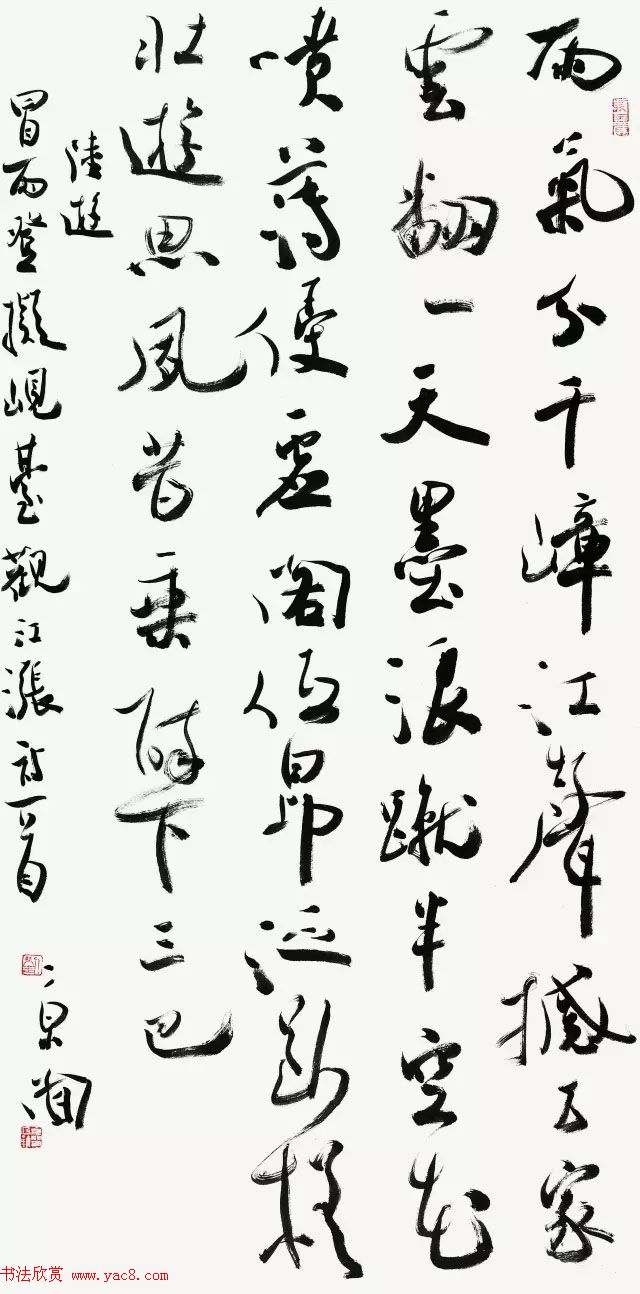 雨氣分千嶂江聲撼万家
雲翻一天墨浪蹴半空花
噴薄侵虛閣低昂泛斷槎
壯遊思夙昔乘醉下三巴
陸遊
冒雨登擬峴臺觀江漲詩一首
书法欣赏 www.yac8.com